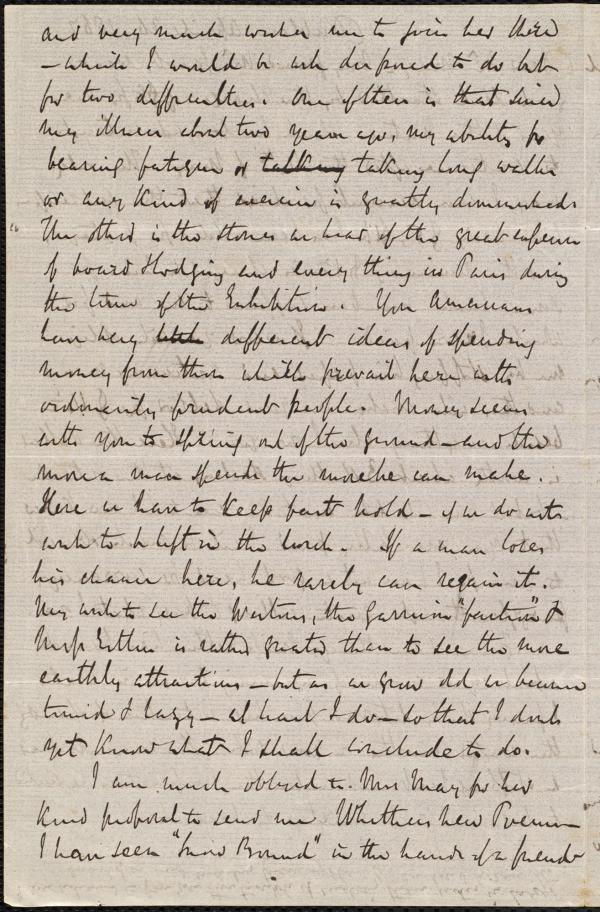 and very much wishes me to join her there
— which I would be well disposed to do but
for two difficulties. One of them is that since
my illness about two years ago, my ability for
bearing fatigue or talking taking long walks
or any kind of exercise is greatly diminished.
The other is the stories we hear of the great expense
of board & lodging and every thing in Paris during
the time of the Exhibition. You Americans
have very little different ideas of spending
money from those which prevail here with
ordinarily prudent people. Money seems
with you to spring out of the ground — and the
more a man spends the more he can make.
Here we have to keep fast hold — if we do not
wish to be left in the lurch. If a man loses
his chance here, he rarely can regain it.
My wish to see the Westons, the Garrison "faction" &
Miss Estlin is rather greater than to see the more
earthly attractions — but as we grow old we become
timid & lazy — at least I do — so that I don't
yet know what I shall conclude to do.
I am much obliged to Mrs May for her
kind proposal to send me Whittier's new Poem —
I have seen "Snow Bound" in the hands of a friend